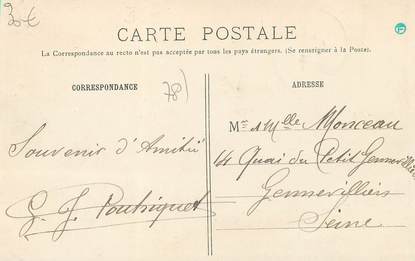 30€
CARTE POSTALE
La Correspondance au recto n'est pas acceptée par tous les pays étrangers. (Se renseigner à la Poste).
CORRESPONDANCE
78)
Souvenir d'Amitié
G. J.
ADRESSE
Mr & Mlle Monceau
44 Quai du Petit Gennevilliers
Gennevilliers
Seine